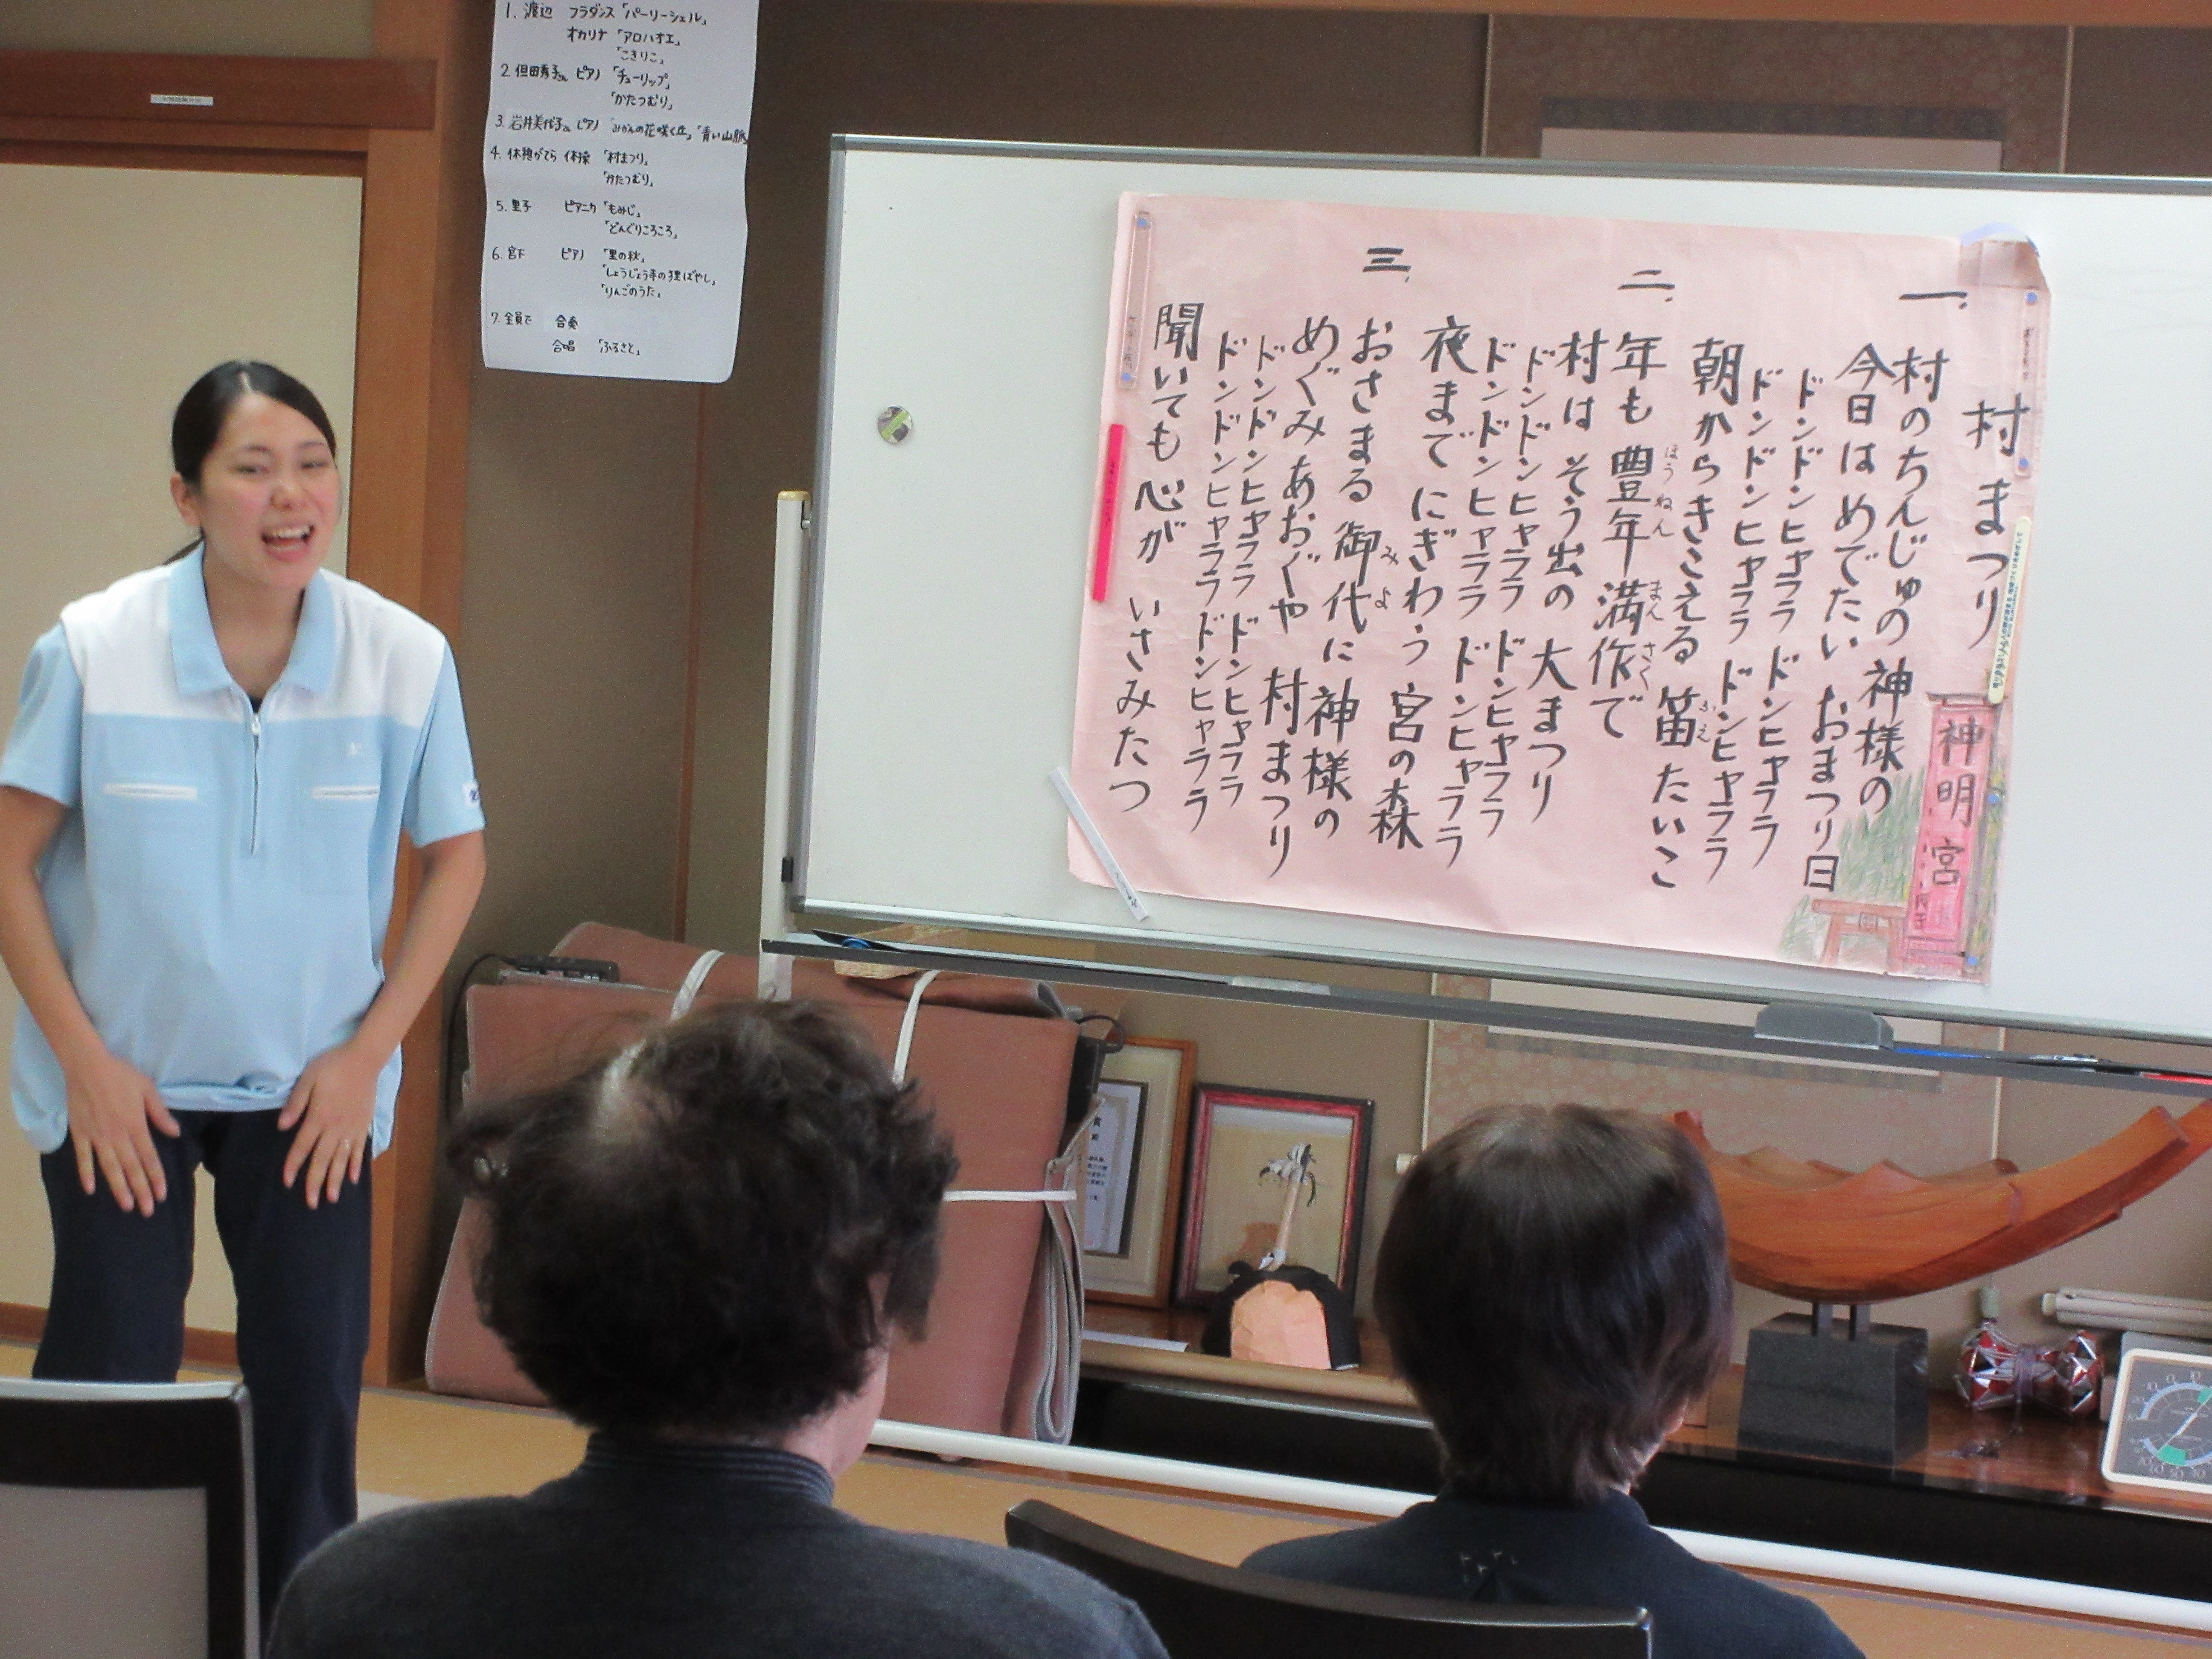 1. 渡辺 フラダンス「パーリーシェル」
オカリナ「アロハオエ」
「こきりこ」
2. 但田秀子さん ピアノ 「チューリップ」
「かたつむり」
3. 岩井美代子さん ピアノ 「みかんの花咲く丘」「青い山脈」
4. 休憩がてら 体操 「村まつり」
「かたつむり」
5. 里子 ピアニカ 「もみじ」
「どんぐりころころ」
6. 宮下 ピアノ 「里の秋」
「しょうじょう寺の狸ばやし」
「りんごのうた」
7. 全員で 合奏
合唱 「ふるさと」
村まつり
一、村のちんじゅの 神様の
今日は めでたい おまつり日
ドンドンヒャララ ドンヒャララ
ドンドンヒャララ ドンヒャララ
朝からきこえる 笛たいこ
ふえ
二、年も 豊年満作で
ほうねん まんさく
村は そう出の 大まつり
ドンドンヒャララ ドンヒャララ
ドンドンヒャララ ドンヒャララ
夜まで にぎわう 宮の森
三、おさまる 御代に 神様の
みよ
めぐみあおぐや 村まつり
ドンドンヒャララ ドンヒャララ
ドンドンヒャララ ドンヒャララ
聞いても 心が いさみたつ
神明宮